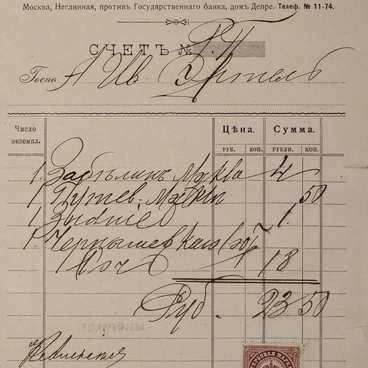 Москва, Неглинная, противъ Государственнаго банка, домъ Депре. Телеф. № 11-74.
СЧЕТЪ №
Госпо А Ив. Эртель
Число экземпл. Цѣна. Сумма.
РУБ. КОП. РУБЛИ. КОП.
1 Забѣлинъ Москва 4
1 Путев. 50
1 1.
1 Чернышевскаго
18
Руб. 23 50